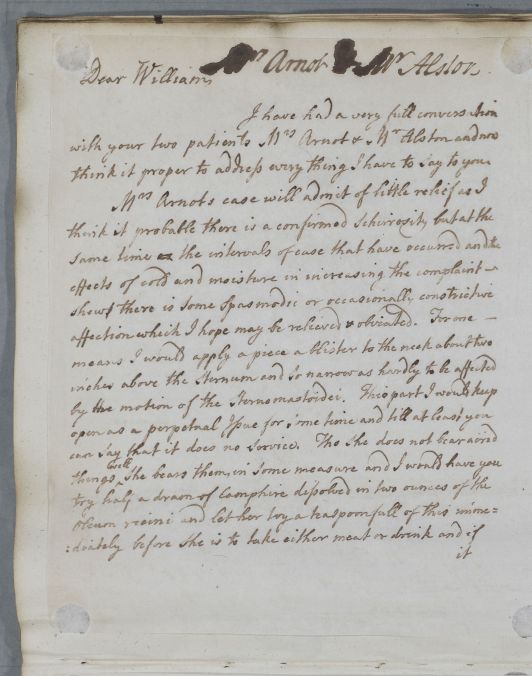 Mrs Arnot & Mr Alston
Dear William,
I have had a very full conversation
with your two patients Mrs Arnot & Mr Alston and now
think it proper to address every thing I have to say to you.
Mrs Arnots case will admit of little relief as I
think it probable there is a confirmed Schirrosity but at the
same time the intervals of ease that have occurred and the
effects of cold and moisture in increasing the complaint
shows there is some Spasmodic or occasionally constrictive
affection which I hope may be relieved & obviated. For one
means I would apply a piece a blister to the neck about two
inches above the Sternum and so narrow as hardly to be affected
by the motion of the Sternomastoidei. This part I would keep
open as a perpetual Issue for some time and till at least you
can say that it does no Service. Tho she does not bear
things well She bears them in Some measure and I would have you
try half a dram of Camphire disolved in two ounces of the
Oleum ricini and let her try a teaspoonfull of this imme=
=diately before She is to take either meat or drink and if
it